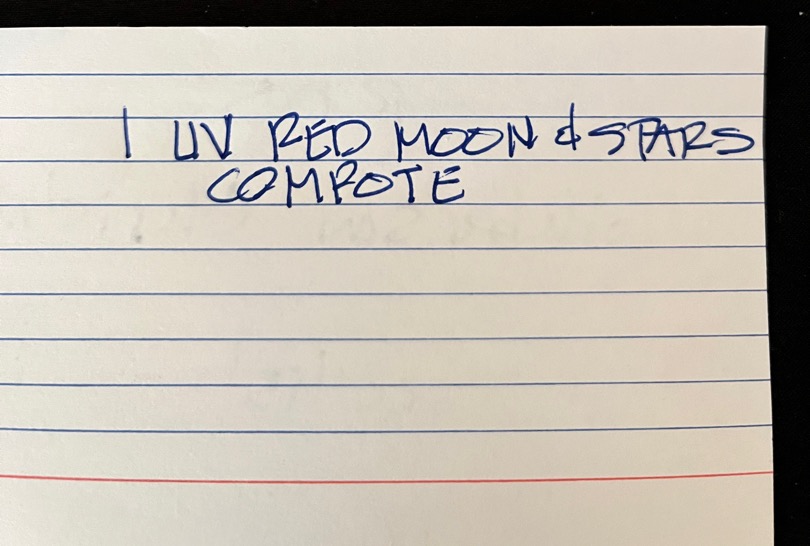 1 UV RED MOON & STARS
COMPOTE